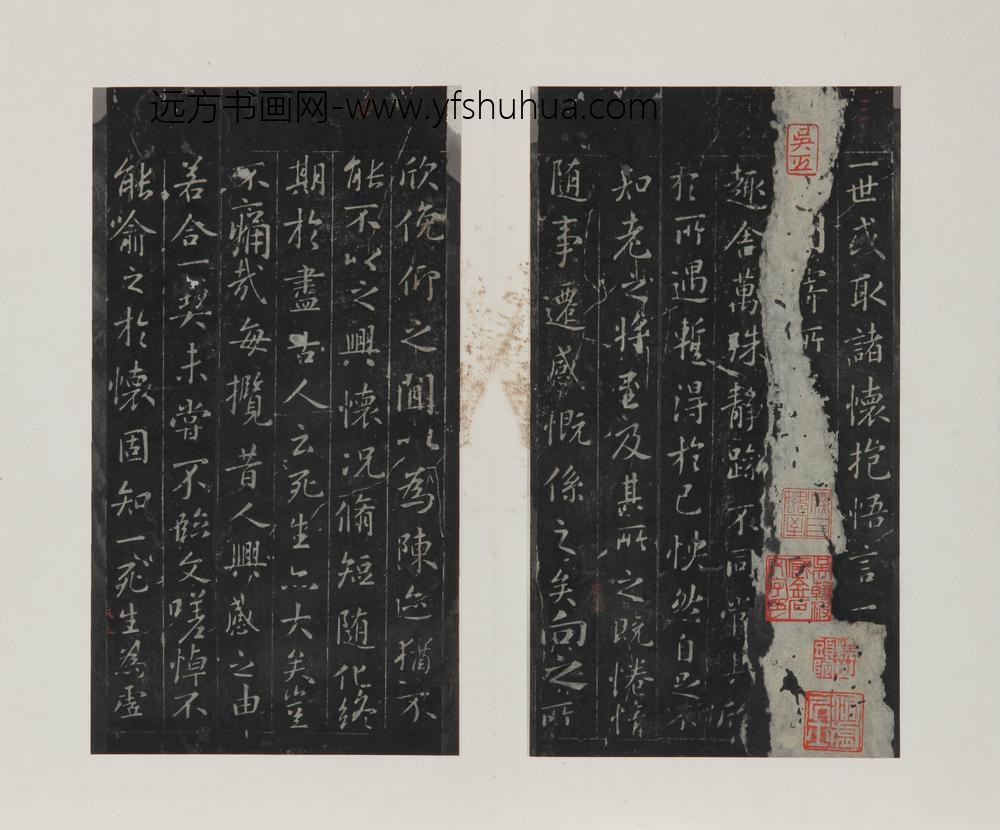 远方书画网-www.yfshuhua.com
一世或取諸懷抱悟言一
寄所
趣舍萬殊靜躁不同當其欣
於所遇暫得於己怏然自足不
知老之將至及其所之既惓情
随事遷感慨係之矣向之所
欣俛仰之閒以為陳迹猶不
能不以之興懷況脩短随化終
期於盡古人云死生亦大矣豈
不痛哉每攬昔人興感之由
若合一契未嘗不臨文嗟悼不
能喻之於懷固知一死生為虛